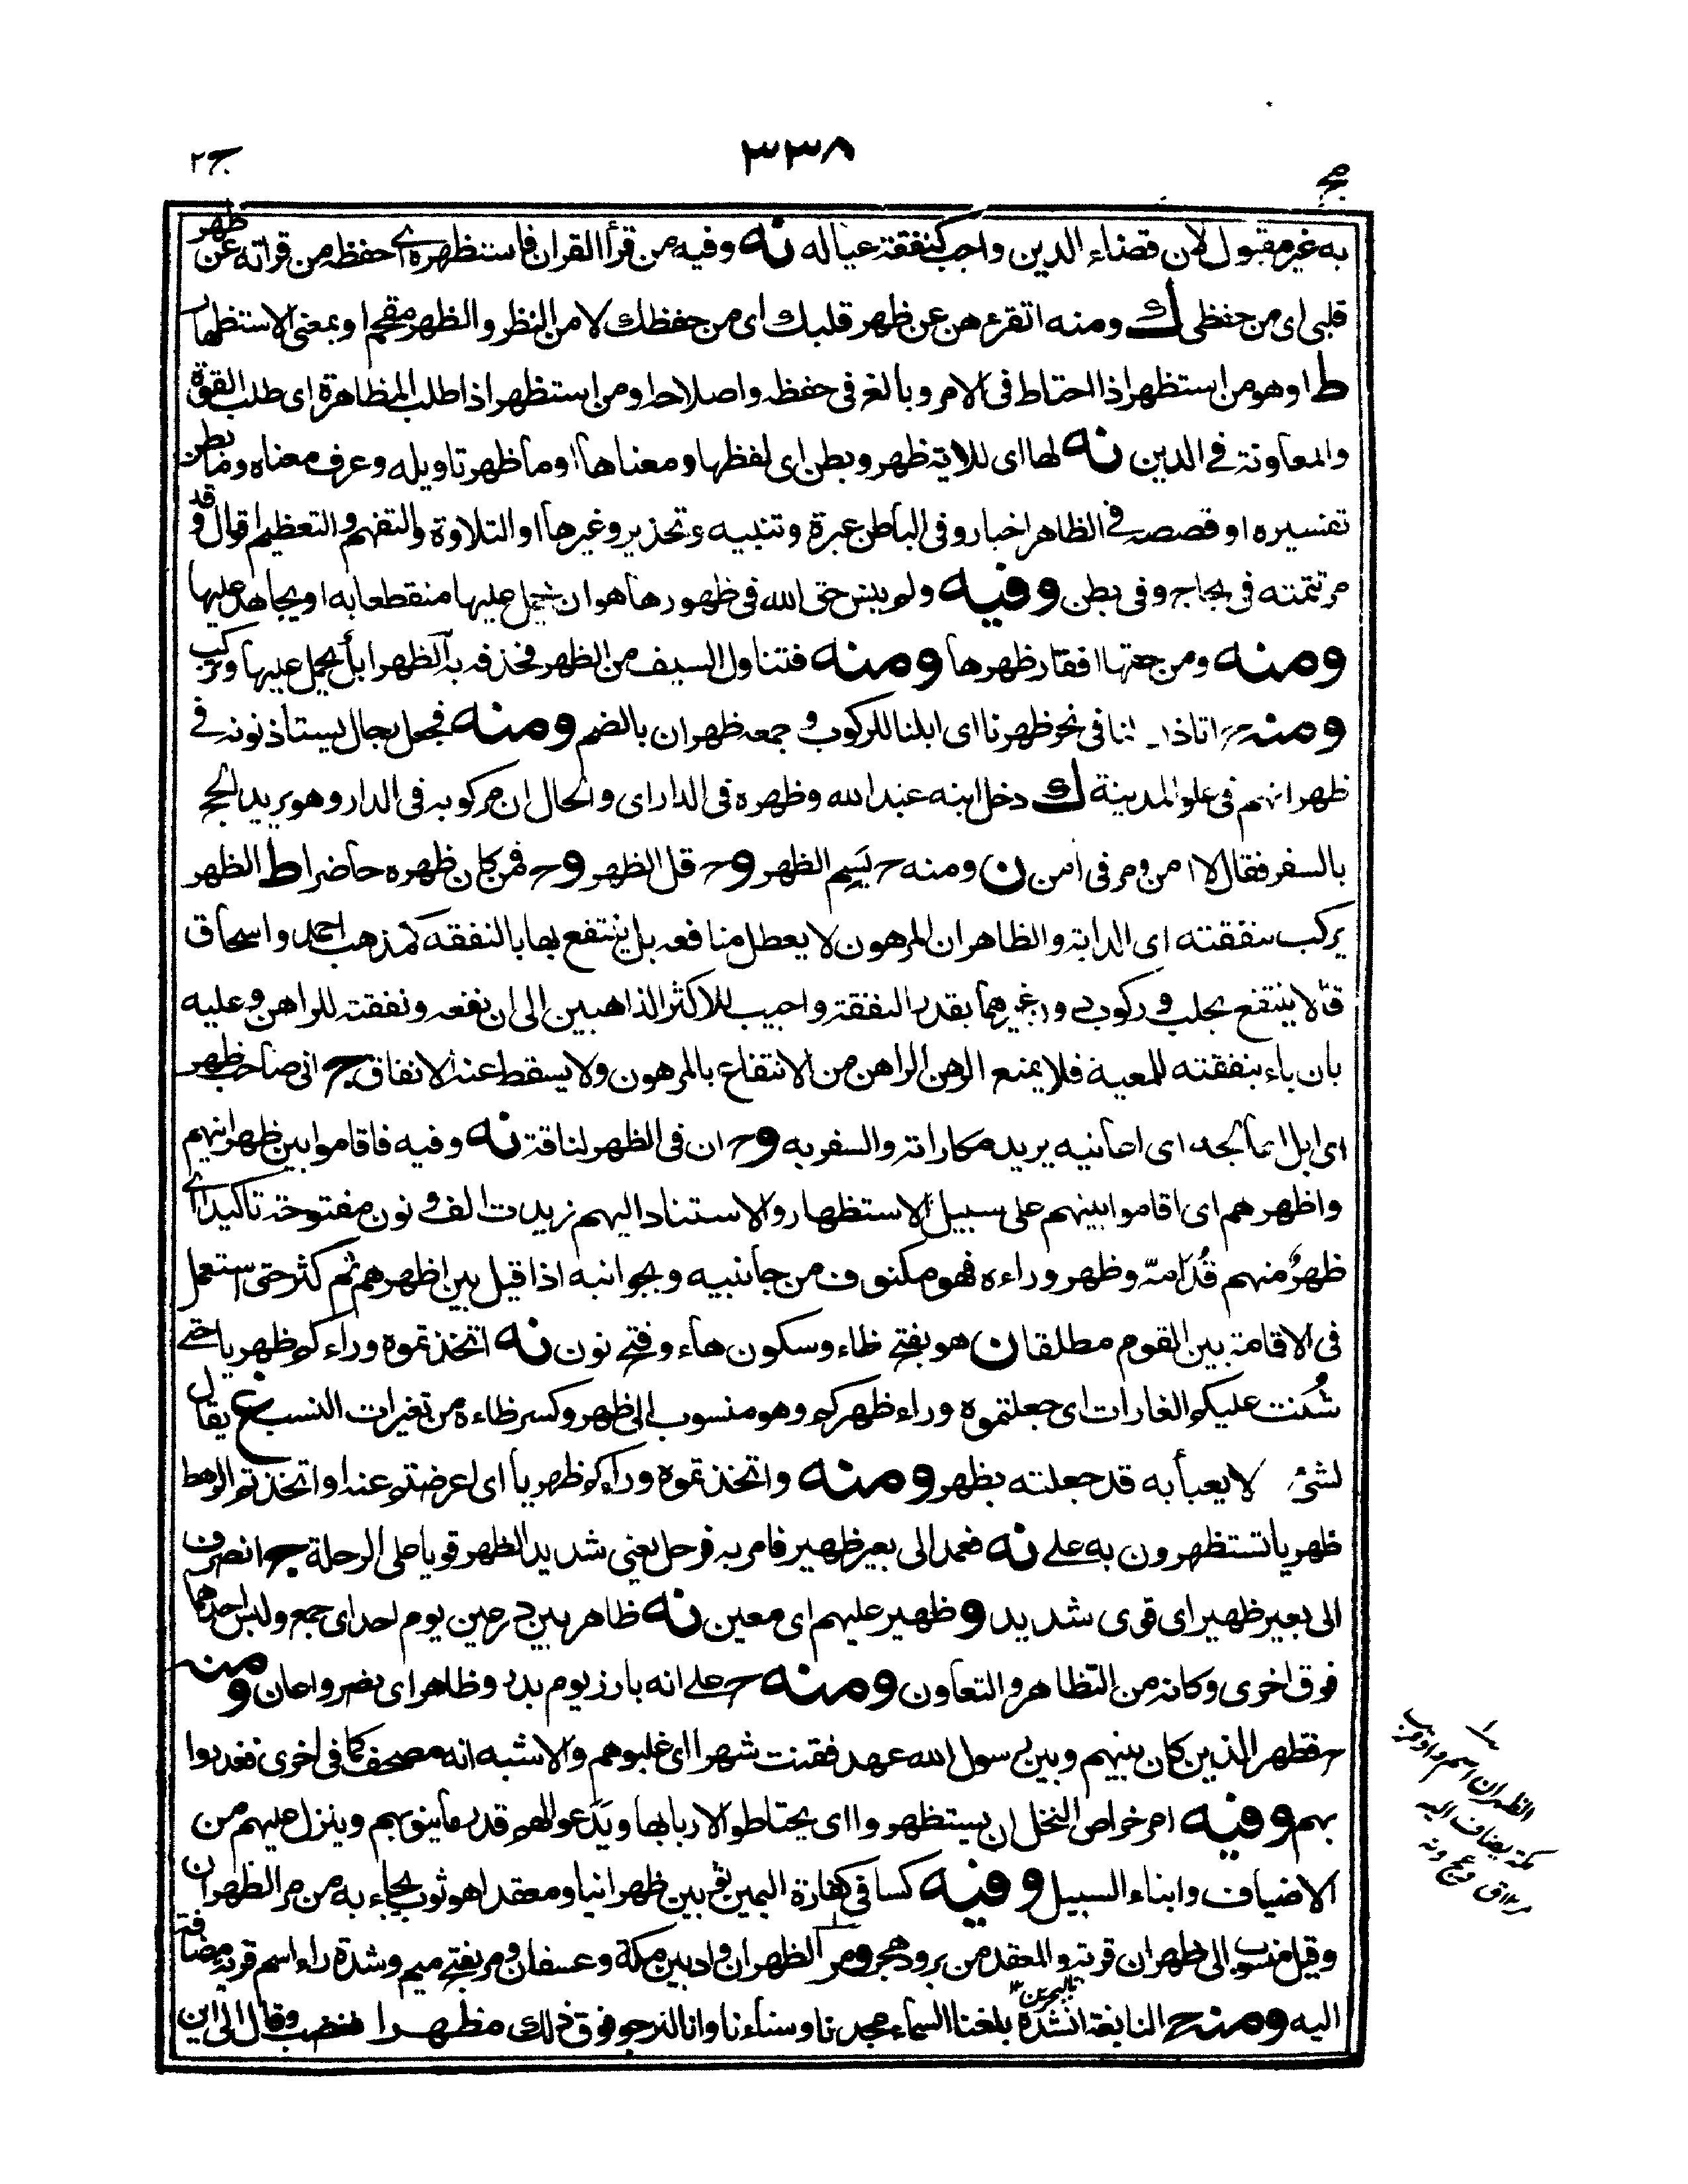 ج٢
٣٣٨
به غير مقبول لان قضاء الدين واجب كنفقة عياله نه وفيه من قرأ القران فاستظهره اى حفظه من قراته عن ظهر
قلبى اى من حفظى ك ومنه اتقرءهن عن ظهر قلبك اى من حفظك لا من النظر والظهر مقحم او بمعنى الاستظهار
ط او هو من استظهر اذا احتاط فى الامر وبالغ فى حفظه واصلاحه او من استظهر اذا طلب المظاهرة اى طلب القوة
والمعاونة فى الدين نه لها اى للاية ظهر وبطن اى لفظها ومعناها او ما ظهر تاويله وعرف معناه وما بطن
تفسيره او قصصه فى الظاهر اخبار وفى الباطن عبرة وتنبيه وتحذير وغيرها او التلاوة والتفهم والتعظيم اقوال وقد
مر تتمته فى يحاج وفى بطن وفيه ولم ينس حق الله فى ظهورها هو ان يحمل عليها منقطعا به او يجاهد عليها
ومنه ومن حقها افقار ظهرها ومنه فتناول السيف من الظهر فحذفه به الظهر ابل يحمل عليها وتركب
ومنه اتاذن لنا فى نحر ظهرنا اى ابلنا للركوب و جمعه ظهران بالضم ومنه فجعل رجال يستاذنونه فى
ظهرانهم فى علو المدينة ك دخل ابنه عبد الله وظهره فى الدار اى والحال ان مركوبه فى الدار وهو يريد الحج
بالسفر فقال لا امن ومر فى امن ن ومنه ح يسم الظهر وح قل الظهر وح فمن كان ظهره حاضرا ط الظهر
يركب بنفقته اى الدابة والظاهر ان المرهون لا يعطل منافعه بل ينتفع بها بالنفقه كمذهب احمد واسحاق
قالا ينتفع بحلب و ركوب دون غيرهما بقدر النفقة واجيب للاكثر الذاهبين الى ان نفعه ونفقته للراهن وعليه
بان باء بنفقته للمعية فلا يمنع الرهن الراهن من الانتفاع بالمرهون ولا يسقط عنه الانفاق ج انى صاحب ظهر
اى ابل اعالجه اى اعانيه يريد مكاراته والسفر به وح ان فى الظهر لناقة نه وفيه فاقاموا بين ظهرانيهم
واظهرهم اى اقاموا بينهم على سبيل الاستظهار والاستناد اليهم زيدت الف و نون مفتوحة تاكيدا اى
ظهرٌ منهم قُدّامه وظهر وراءه فهو مكنوف من جانبيه وبجوانبه اذا قيل بين اظهرهم ثم كثر حتى استعمل
فى الاقامة بين القوم مطلقا ن هو بفتح ظاء وسكون هاء وفتح نون نه اتخذتموه وراءكم ظهريا حتى
شُنت عليكم الغارات اى جعلتموه وراء ظهركم وهو منسوب الى ظهر وكسر ظاءه من تغيرات النسب غ يقال
لشئ لا يعبأ به قد جعلته بظهر ومنه واتخذتموه وراءكم ظهريا اى اعرضتم عنه او اتخذتم الرهط
ظهريا تستظهرون به على نه فعمد الى بعير ظهير فامر به فرحل يعنى شديد الظهر قويا على الرحلة ج انصرف
الى بعير ظهير اى قوى شديد و ظهير عليهم اى معين نه ظاهر بين درعين يوم احد اى جمع ولبس احدهما
فوق اخرى وكانه من التظاهر والتعاون ومنه ح على انه بارز يوم بدر وظاهر اى نصر واعان ومنه
ح فظهر الذين كان بينهم وبين رسول الله عهد فقنت شهرا اى غلبوهم والاشبه انه مصحف كما فى اخرى فغدروا
بهم وفيه امر خراص النخل ان يستظهروا اى يحتاطوا لاربابها ويَدَعوا لهم قدر ما ينوبهم وينزل عليهم من
الاضياف وابناء السبيل وفيه كسا فى كفارة اليمين ثوبين ظهرانيا ومعقدا هو ثوب يجاء به من مر الظهران
وقيل منسوب الى ظهران قرية بالبحرين والمعقد من برود هجر ومر الظهران واد بين مكة وعسفان ومر بفتح ميم وشدة راء اسم قرية مضافة
اليه ومنه ح النابغة انشده بلغنا السماء مجدنا وسناءنا وانا لنرجو فوق ذلك مظهرا فغضب وقال الى اين
الظهران اسم واد قرب
مكة يضاف اليه